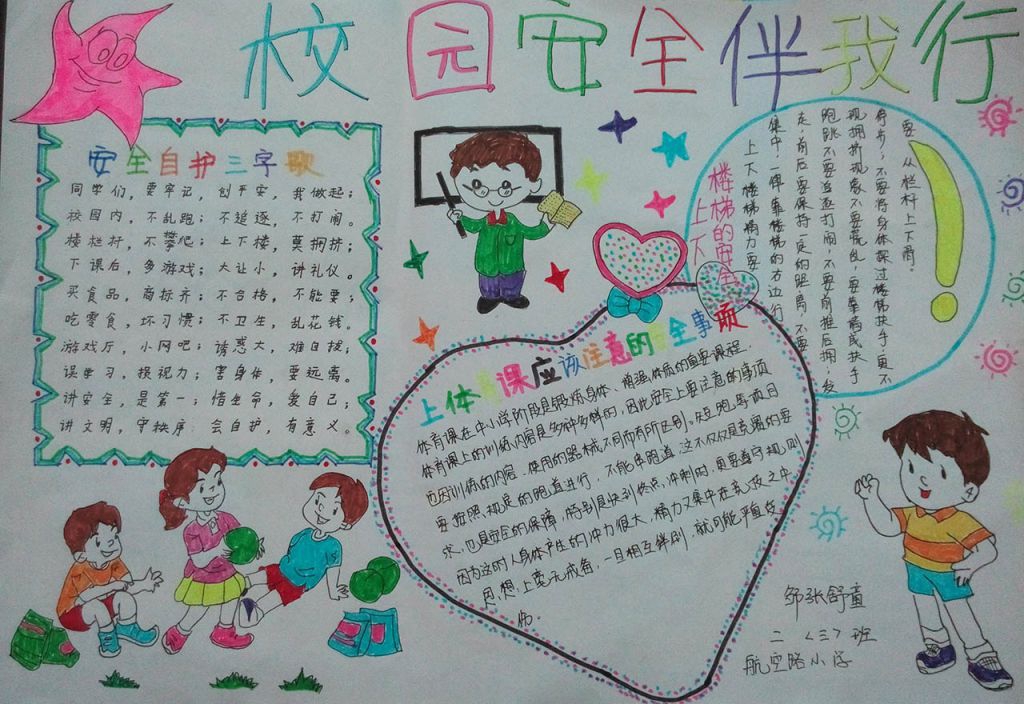 校园安全伴我行
安全自护三字歌
同学们，要牢记，创平安，我做起；
校园内，不乱跑；不追逐，不打闹。
楼栏杆，不攀爬；上下楼，莫拥挤；
下课后，多游戏；大让小，讲礼仪。
买食品，商标齐；不合格，不能要；
吃零食，坏习惯；不卫生，乱花钱。
游戏厅，小网吧；诱惑大，难自拔；
误学习，损视力；害身体，要远离。
讲安全，是第一；惜生命，爱自己；
讲文明，守秩序；会自护，有意义。
上下
楼梯的安全
上下楼梯精力要
集中，一律靠楼梯的右边行
走，前后要保持一定的距离，不要
跑跳不要追逐打闹，不要前推后拥，发
现拥挤现象不要慌乱，要靠墙或扶手
停步，不要将身体探过楼梯扶手，更不
要从栏杆上下滑。
上体育课应该注意的安全事项
体育课在中小学阶段是锻炼身体、增强体质的重要课程。
体育课上的训练内容是多种多样的，因此安全上要注意的事项
也因训练的内容、使用的器械不同而有所区别。短跑等项目
要按照规定的跑道进行，不能串跑道。这不仅仅是竞赛的要
求，也是安全的保障。特别是快到终点冲刺时，更要遵守规则
因为这时人身体产生的冲力很大，精力又集中在竞技之中
思想上毫无戒备，一旦相互绊倒，就可能严重受
伤。
邹张舒童
二〈三〉班
航空路小学